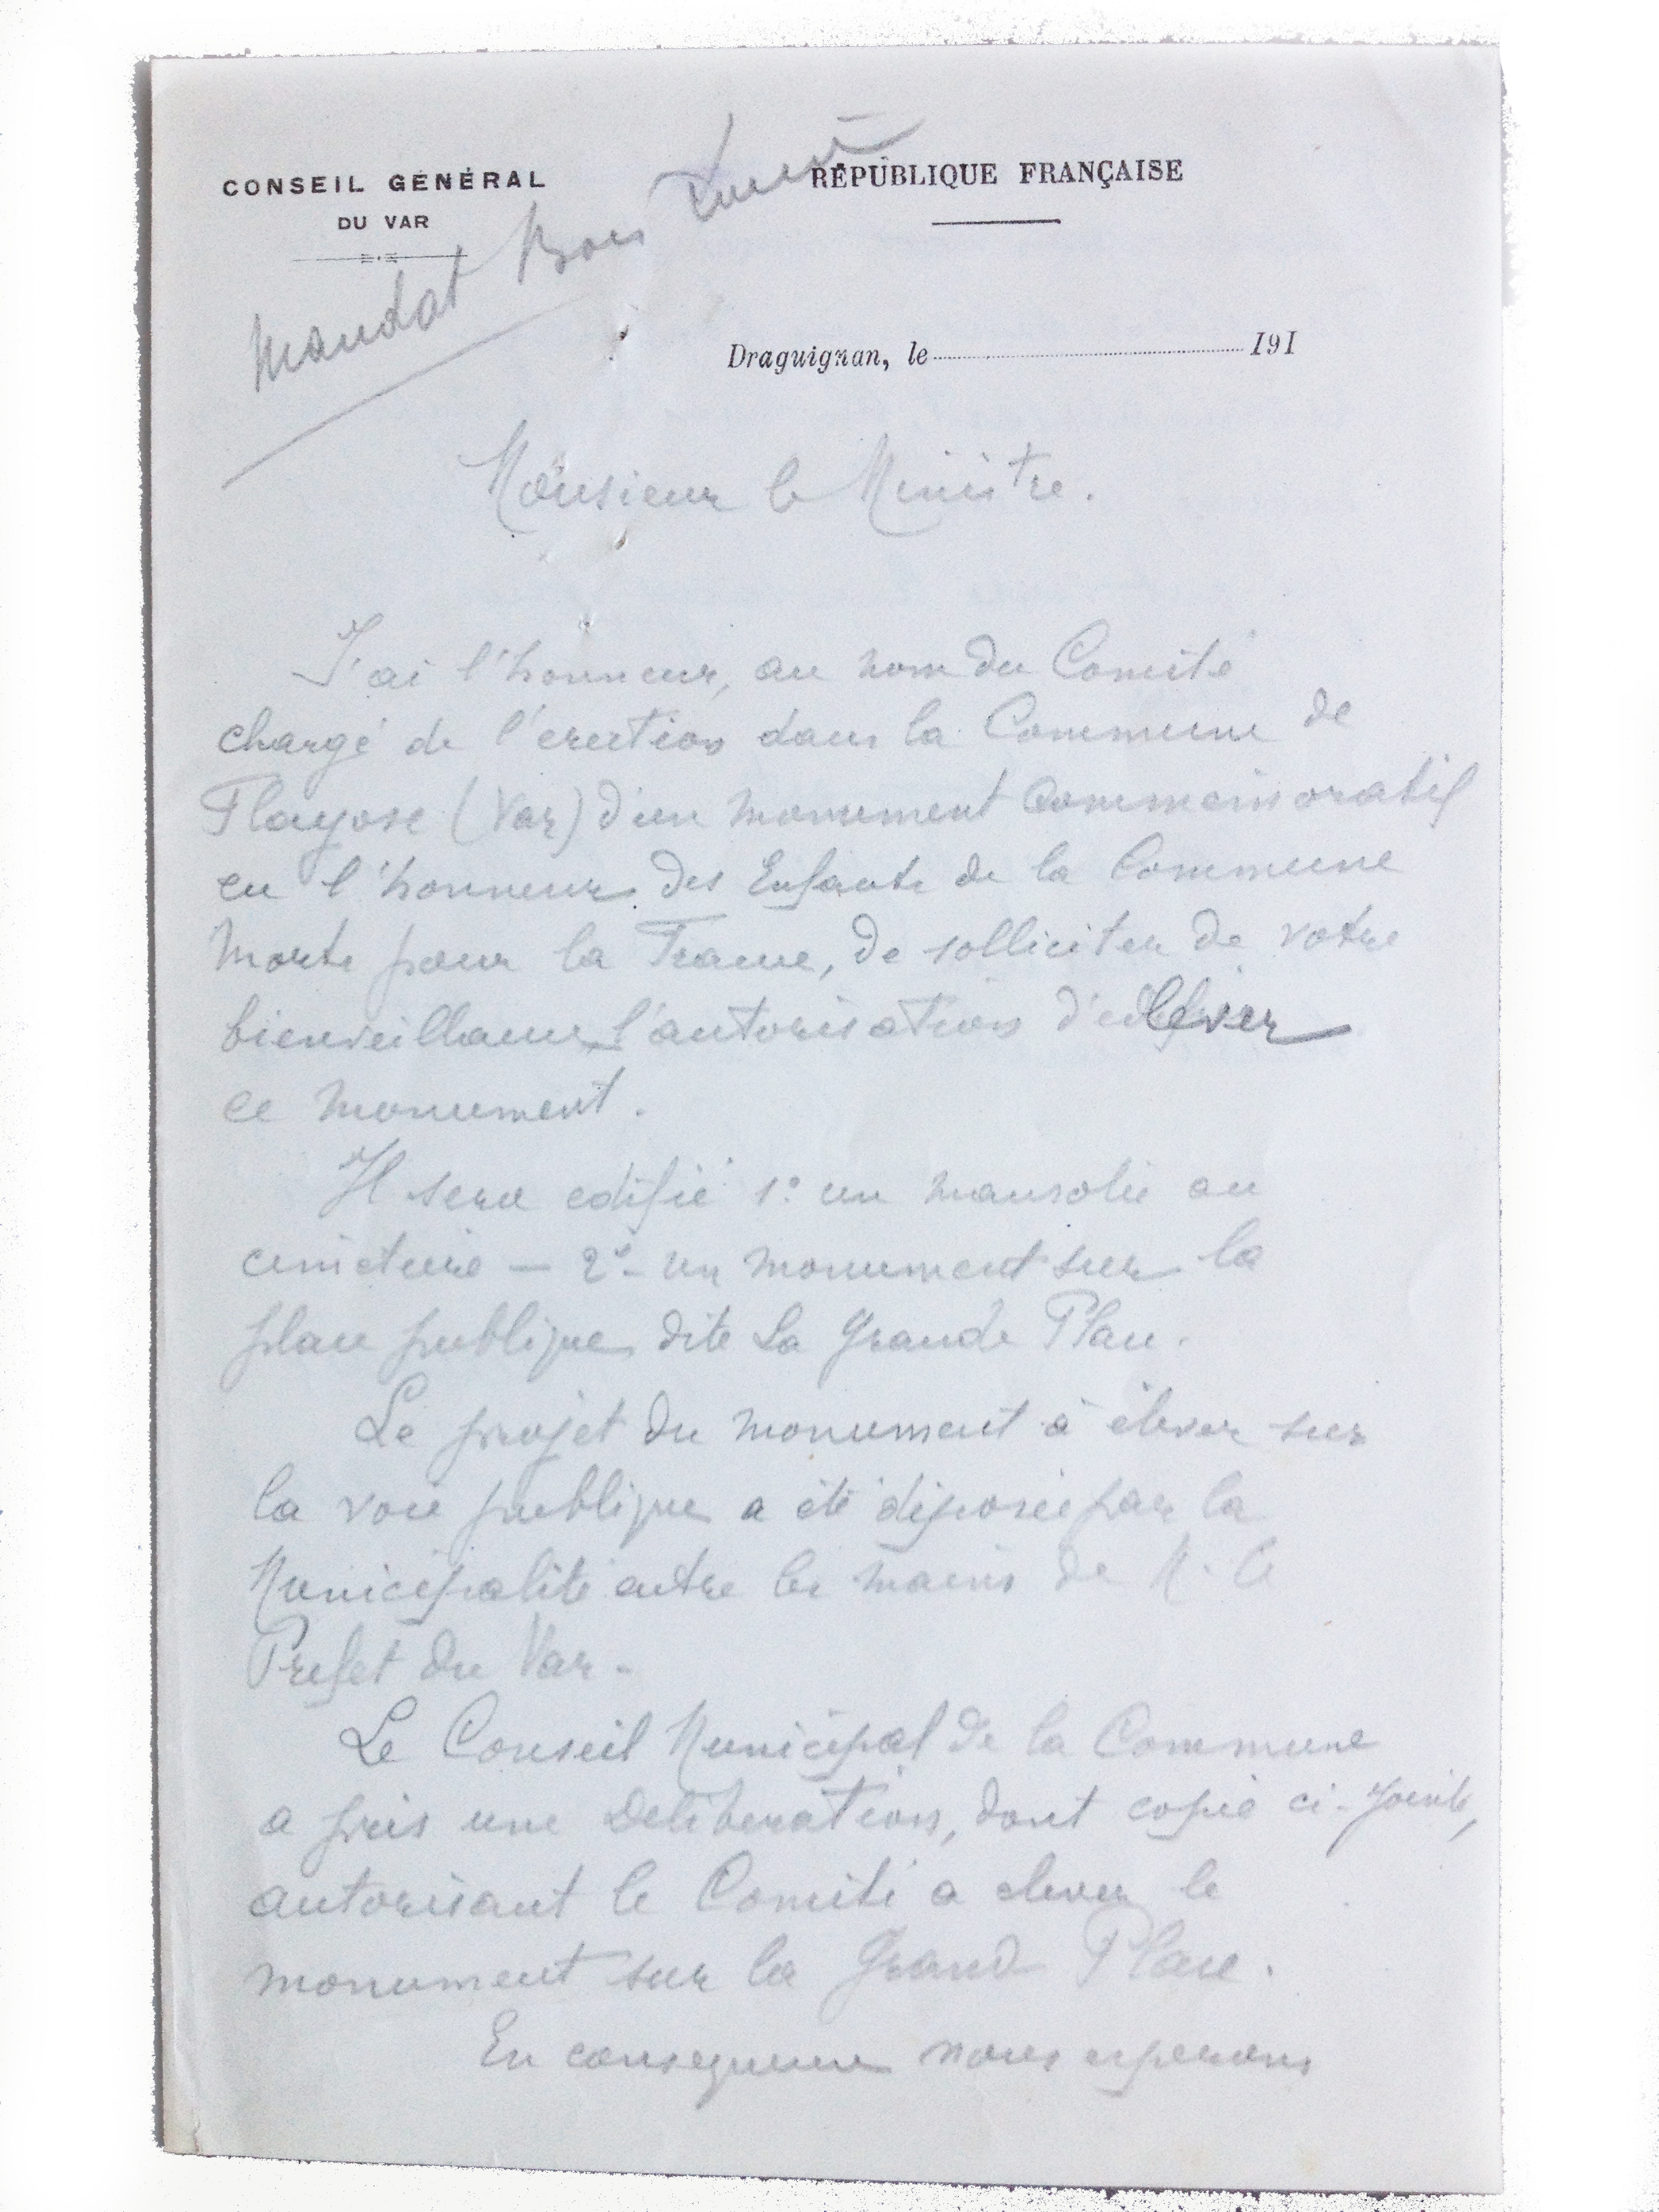 CONSEIL GÉNÉRAL
DU VAR
RÉPUBLIQUE FRANÇAISE
Mandat
Draguignan, le 191
Monsieur le Ministre.
J'ai l'honneur, au nom du Comité
chargé de l'erection dans la Commune de
Flayosc (Var) d'un monument commemoratif
en l'honneur des Enfants de la Commune
Morts pour la France, de solliciter de votre
bienveillance l'autorisation d'élever
ce monument.
Il sera edifié 1° un mausolée au
cimetière — 2° un monument sur la
place publique dite La Grande Place.
Le projet du monument à élever sur
la voie publique a été déposée par la
Municipalité entre les mains de M. le
Prefet du Var.
Le Conseil Municipal de la Commune
a pris une Deliberation, dont copie ci-jointe,
autorisant le Comité a elever le
monument sur la Grand Place.
En consequence nous esperons